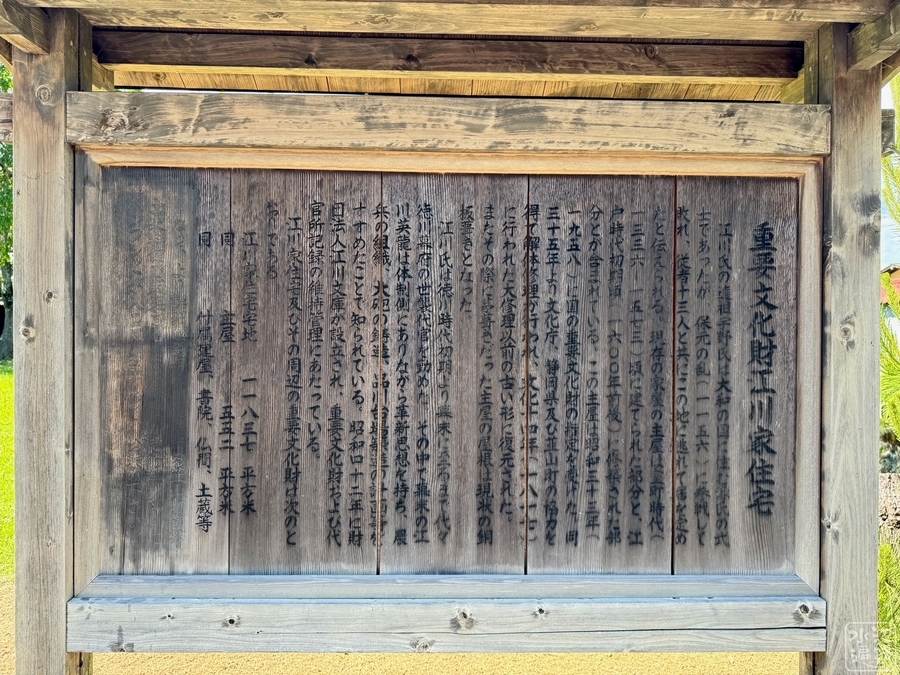 重要文化財江川家住宅
江川氏の遠祖宇野氏は大和の国に住む源氏の武
士であったが、保元の乱(一一五六)に参戦して
敗れ、従者十三人と共にこの地に逃れ、居を定め
たと伝えられる。現存の家屋の主屋は室町時代(
一三三六~一五七三)頃に建てられた部分と、江
戸時代初期頃(一六〇〇年前後)に修築された部
分とが含まれている。この主屋は昭和三十三年(
一九五八)に国の重要文化財の指定を受けた。同
三十五年より文化庁、静岡県及び韮山町の協力を
得て解体修理が行われ、文化十四年(一八一七)
に行われた大修理以前の古い形に復元された。
またその際、茅葺きだった主屋の屋根も現状の銅
板葺きとなった。
江川氏は徳川時代初期より幕末に至るまで代々
徳川幕府の世襲代官を勤めた。その中で幕末の江
川英龍は体制側にありながら革新思想を持ち、農
兵の組織、大砲の鋳造、品川台場築造の計画等を
すすめたことで知られている。昭和四十二年に財
団法人江川文庫が設立され、重要文化財および代
官所記録の維持管理にあたっている。
江川家住宅及びその周辺の重要文化財は次のと
おりである。
江川家宅地 一一八三七 平方米
同 主屋 五五二 平方米
同 付属建屋 書院、仏間、土蔵等